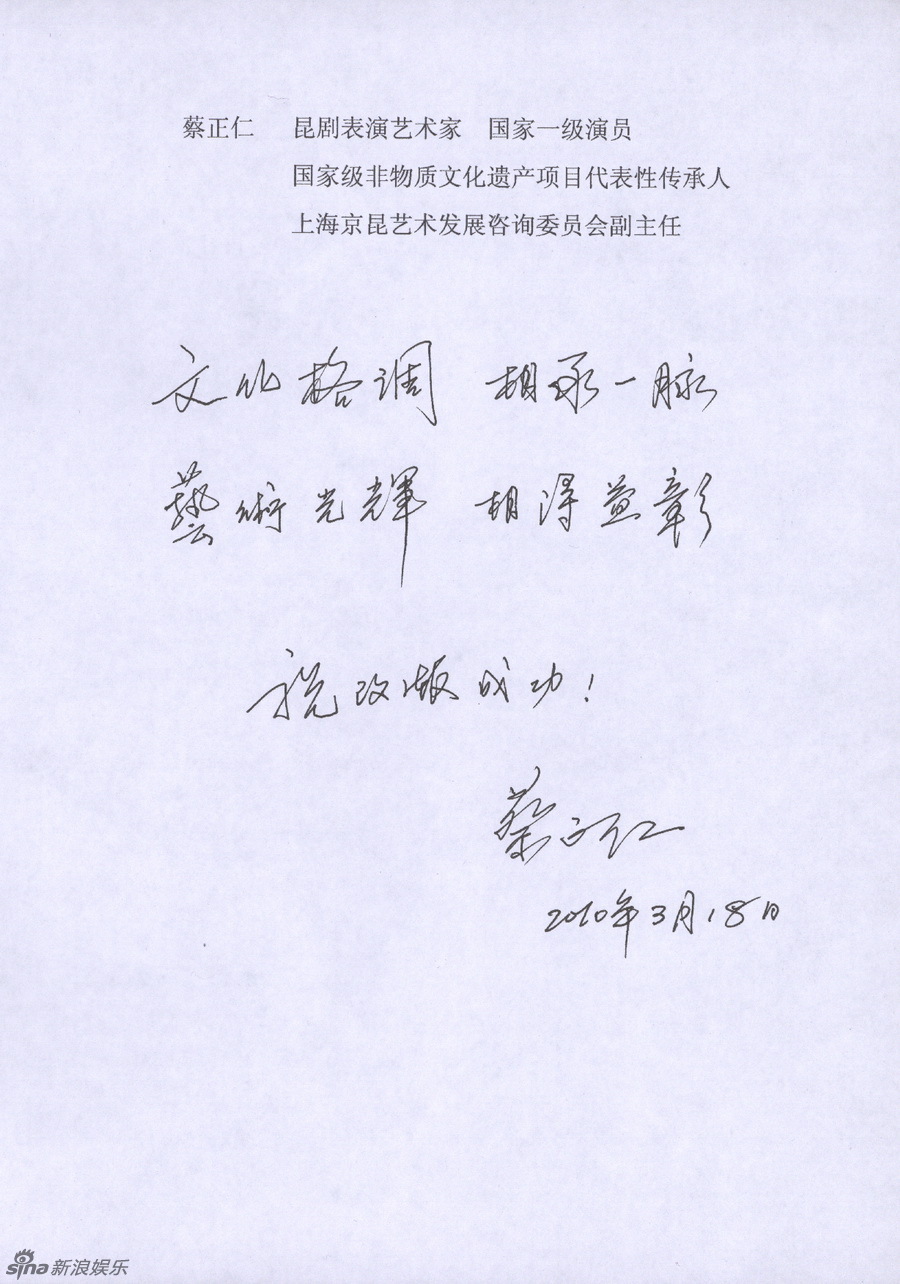 蔡正仁 昆剧表演艺术家 国家一级演员
国家级非物质文化遗产项目代表性传承人
上海京昆艺术发展咨询委员会副主任
文化格调 相承一脉
藝術光輝 相得益彰
祝改版成功!
蔡正仁
2010年3月18日
sina新浪娱乐